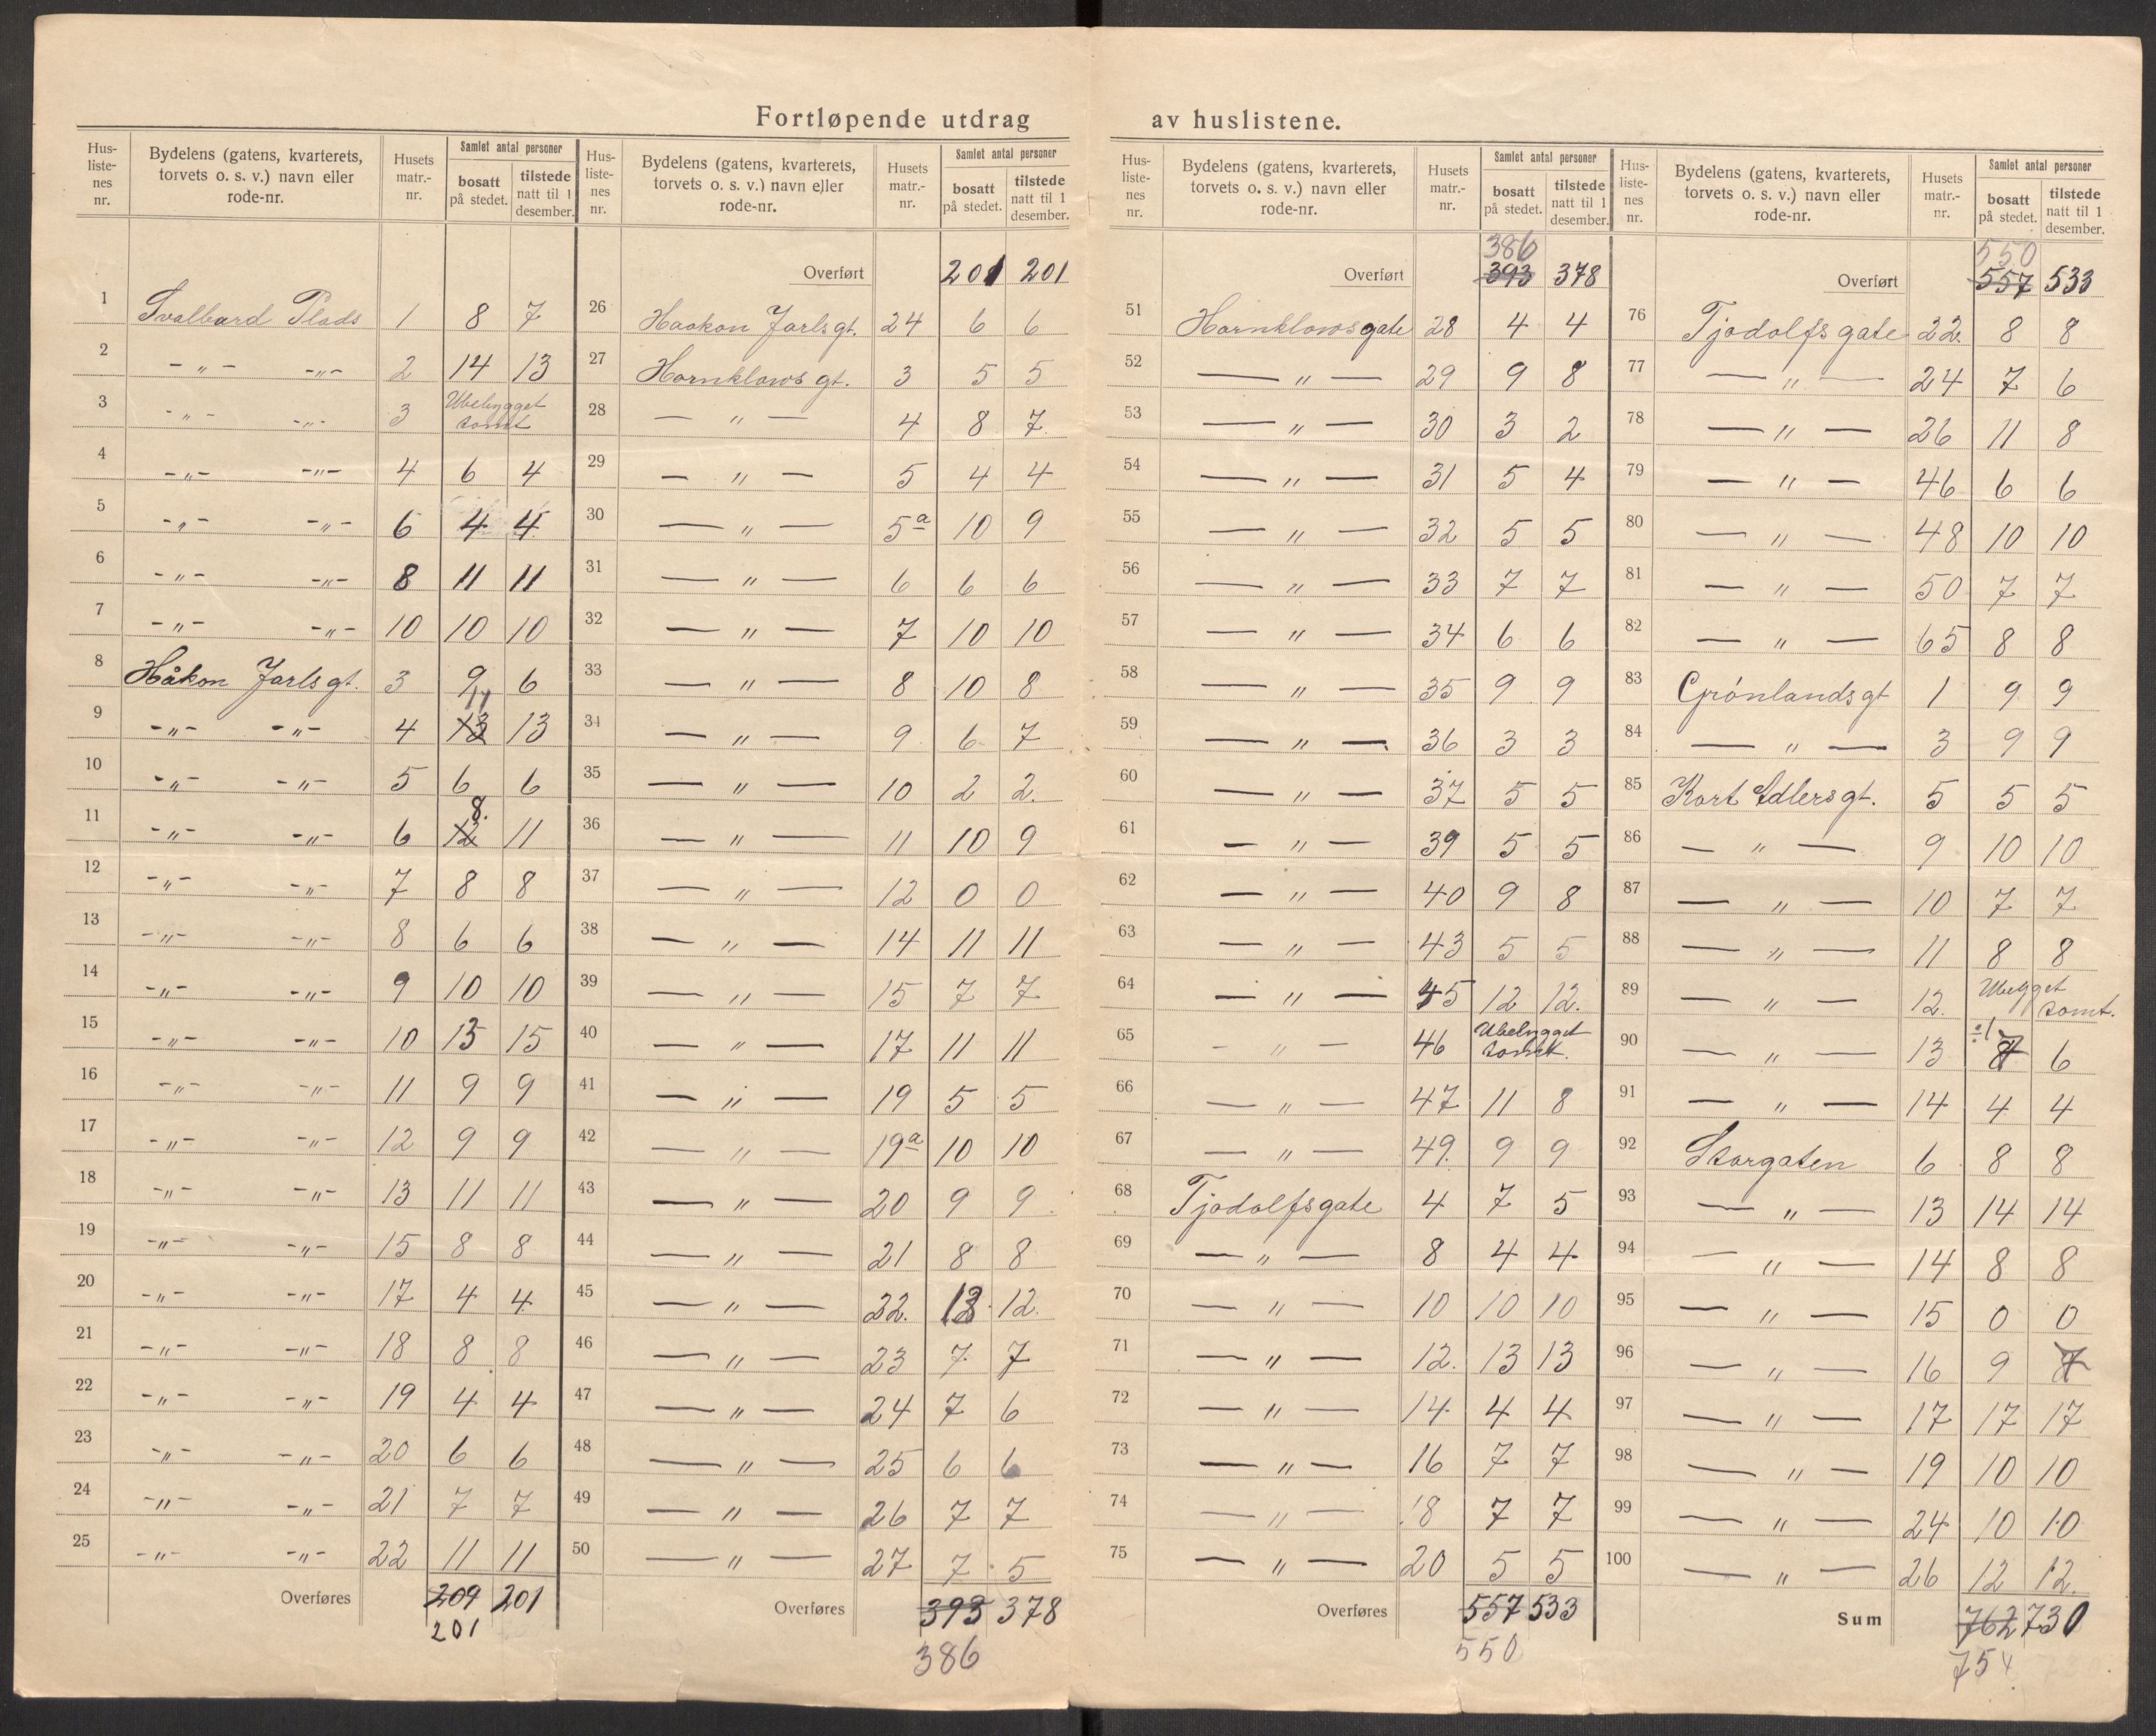 Fortløpende utdrag av huslistene.
Hus-liste-nes nr. | Bydelens (gatens, kvarterets, torvets o. s. v.) navn eller rode-nr. | Husets matr.-nr. | Samlet antal personer bosatt på stedet. | tilstede natt til 1 desember.
1 Svalbard Plads 1 8 7
2 -"- -"- 2 14 13
3 -"- -"- 3 Ubebygget tomt
4 -"- -"- 4 6 4
5 -"- -"- 6 4 4
6 -"- -"- 8 11 11
7 -"- -"- 10 10 10
8 Håkon Jarls gt. 3 9 6
9 -"- -"- 4 13 11 13
10 -"- -"- 5 6 6
11 -"- -"- 6 12 8. 11
12 -"- -"- 7 8 8
13 -"- -"- 8 6 6
14 -"- -"- 9 10 10
15 -"- -"- 10 15
16 -"- -"- 11 9 9
17 -"- -"- 12 9 9
18 -"- -"- 13 11 11
19 -"- -"- 15 8 8
20 -"- -"- 17 4 4
21 -"- -"- 18 8 8
22 -"- -"- 19 4 4
23 -"- -"- 20 6 6
24 -"- -"- 21 7 7
25 -"- -"- 22 11 11
Overføres 209 201
201
Hus-liste-nes nr. | Bydelens (gatens, kvarterets, torvets o. s. v.) navn eller rode-nr. | Husets matr.-nr. | Samlet antal personer bosatt på stedet. | tilstede natt til 1 desember.
Overført 201 201
26 Haakon Jarls gt. 24 6 6
27 Hornklows gt. 3 5 5
28 — " — 4 8 7
29 — " — 5 4 4
30 — " — 5a 10 9
31 — " — 6 6 6
32 — " — 7 10 10
33 — " — 8 10 8
34 — " — 9 6 7
35 — " — 10 2 2.
36 — " — 11 10 9
37 — " — 12 0 0
38 — " — 14 11 11
39 — " — 15 7 7
40 — " — 17 11 11
41 — " — 19 5 5
42 — " — 19a 10 10
43 — " — 20 9 9
44 — " — 21 8 8
45 — " — 22. 12.
46 — " — 23 7 7
47 — " — 24 7 6
48 — " — 25 6 6
49 — " — 26 7 7
50 — " — 27 7 5
Overføres 393 378
386
Hus-liste-nes nr. | Bydelens (gatens, kvarterets, torvets o. s. v.) navn eller rode-nr. | Husets matr.-nr. | Samlet antal personer bosatt på stedet. | tilstede natt til 1 desember.
386
Overført 393 378
51 Hornklowsgate 28 4 4
52 — " — 29 9 8
53 — " — 30 3 2
54 — " — 31 5 4
55 — " — 32 5 5
56 — " — 33 7 7
57 — " — 34 6 6
58 — " — 35 9 9
59 — " — 36 3 3
60 — " — 37 5 5
61 — " — 39 5 5
62 — " — 40 9 8
63 — " — 43 5 5
64 — " — 45 12 12.
65 — " — 46 Ubebygget tomt.
66 — " — 47 11 8
67 — " — 49. 9 9
68 Tjodolfsgate 4 7 5
69 — " — 8 4 4
70 — " — 10 10 10
71 — " — 12. 13 13
72 — " — 14 4 4
73 — " — 16 7 7
74 — " — 18 7 7
75 — " — 20 5 5
Overføres 557 533
550
Hus-liste-nes nr. | Bydelens (gatens, kvarterets, torvets o. s. v.) navn eller rode-nr. | Husets matr.-nr. | Samlet antal personer bosatt på stedet. | tilstede natt til 1 desember.
550
Overført 557 533
76 Tjodolfsgate 22. 8 8
77 — " — 24 7 6
78 — " — 26 11 8
79 — " — 46 6 6
80 — " — 48 10 10
81 — " — 50 7 7
82 — " — 65 8 8
83 Grónlandsgt 1 9 9
84 — " — 3 9 9
85 Kort Adlersgt. 5 5 5
86 — " — 9 10 10
87 — " — 10 7 7
88 — " — 11 8 8
89 — " — 12. Ubebygget tomt.
90 — " — 13 6
91 — " — 14 4 4
92 Storgaten 6 8 8
93 — " — 13 14 14
94 — " — 14 8 8
95 — " — 15 0 0
96 — " — 16 9
97 — " — 17 17 17
98 — " — 19 10 10
99 — " — 24 10 10
100 — " — 26 12 12.
Sum 762 730
754